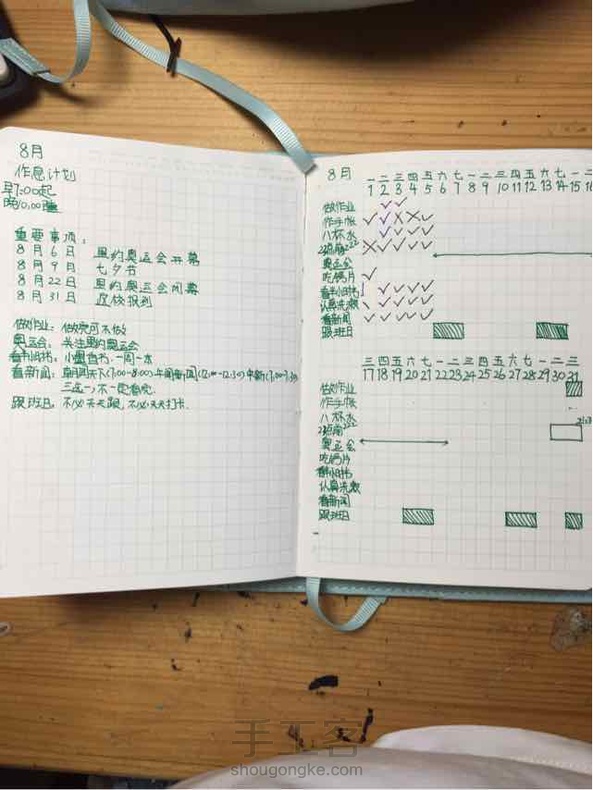 8月
作息计划
早7:00起
晚10:00睡
重要事项：
8月6日 里约奥运会开幕
8月9日 七夕节
8月22日 里约奥运会闭幕
8月31日 返校报到
做作业：做完可不做
奥运会：关注里约奥运会
看书：一周一本
看新闻：朝闻天下(7:00-8:00)午间新闻(12:00-12:30)
三选一，不一定看完
跟班日：不必天天跟，不必天天打卡.
8月
一 二 三 四 五 六 七 一 二 三 四 五 六 七 一 二
1 2 3 4 5 6 7 8 9 10 11 12 13 14 15 16
做作业
作手帐
八杯水
奥运会
吃钙片
认真洗脸
看新闻
跟班日
三 四 五 六 七 一 二 三 四 五 六 七 一 二 三
17 18 19 20 21 22 23 24 25 26 27 28 29 30 31
做作业
作手帐
八杯水
奥运会
吃钙片
认真洗脸
看新闻
跟班日
手工客
shougongke.com